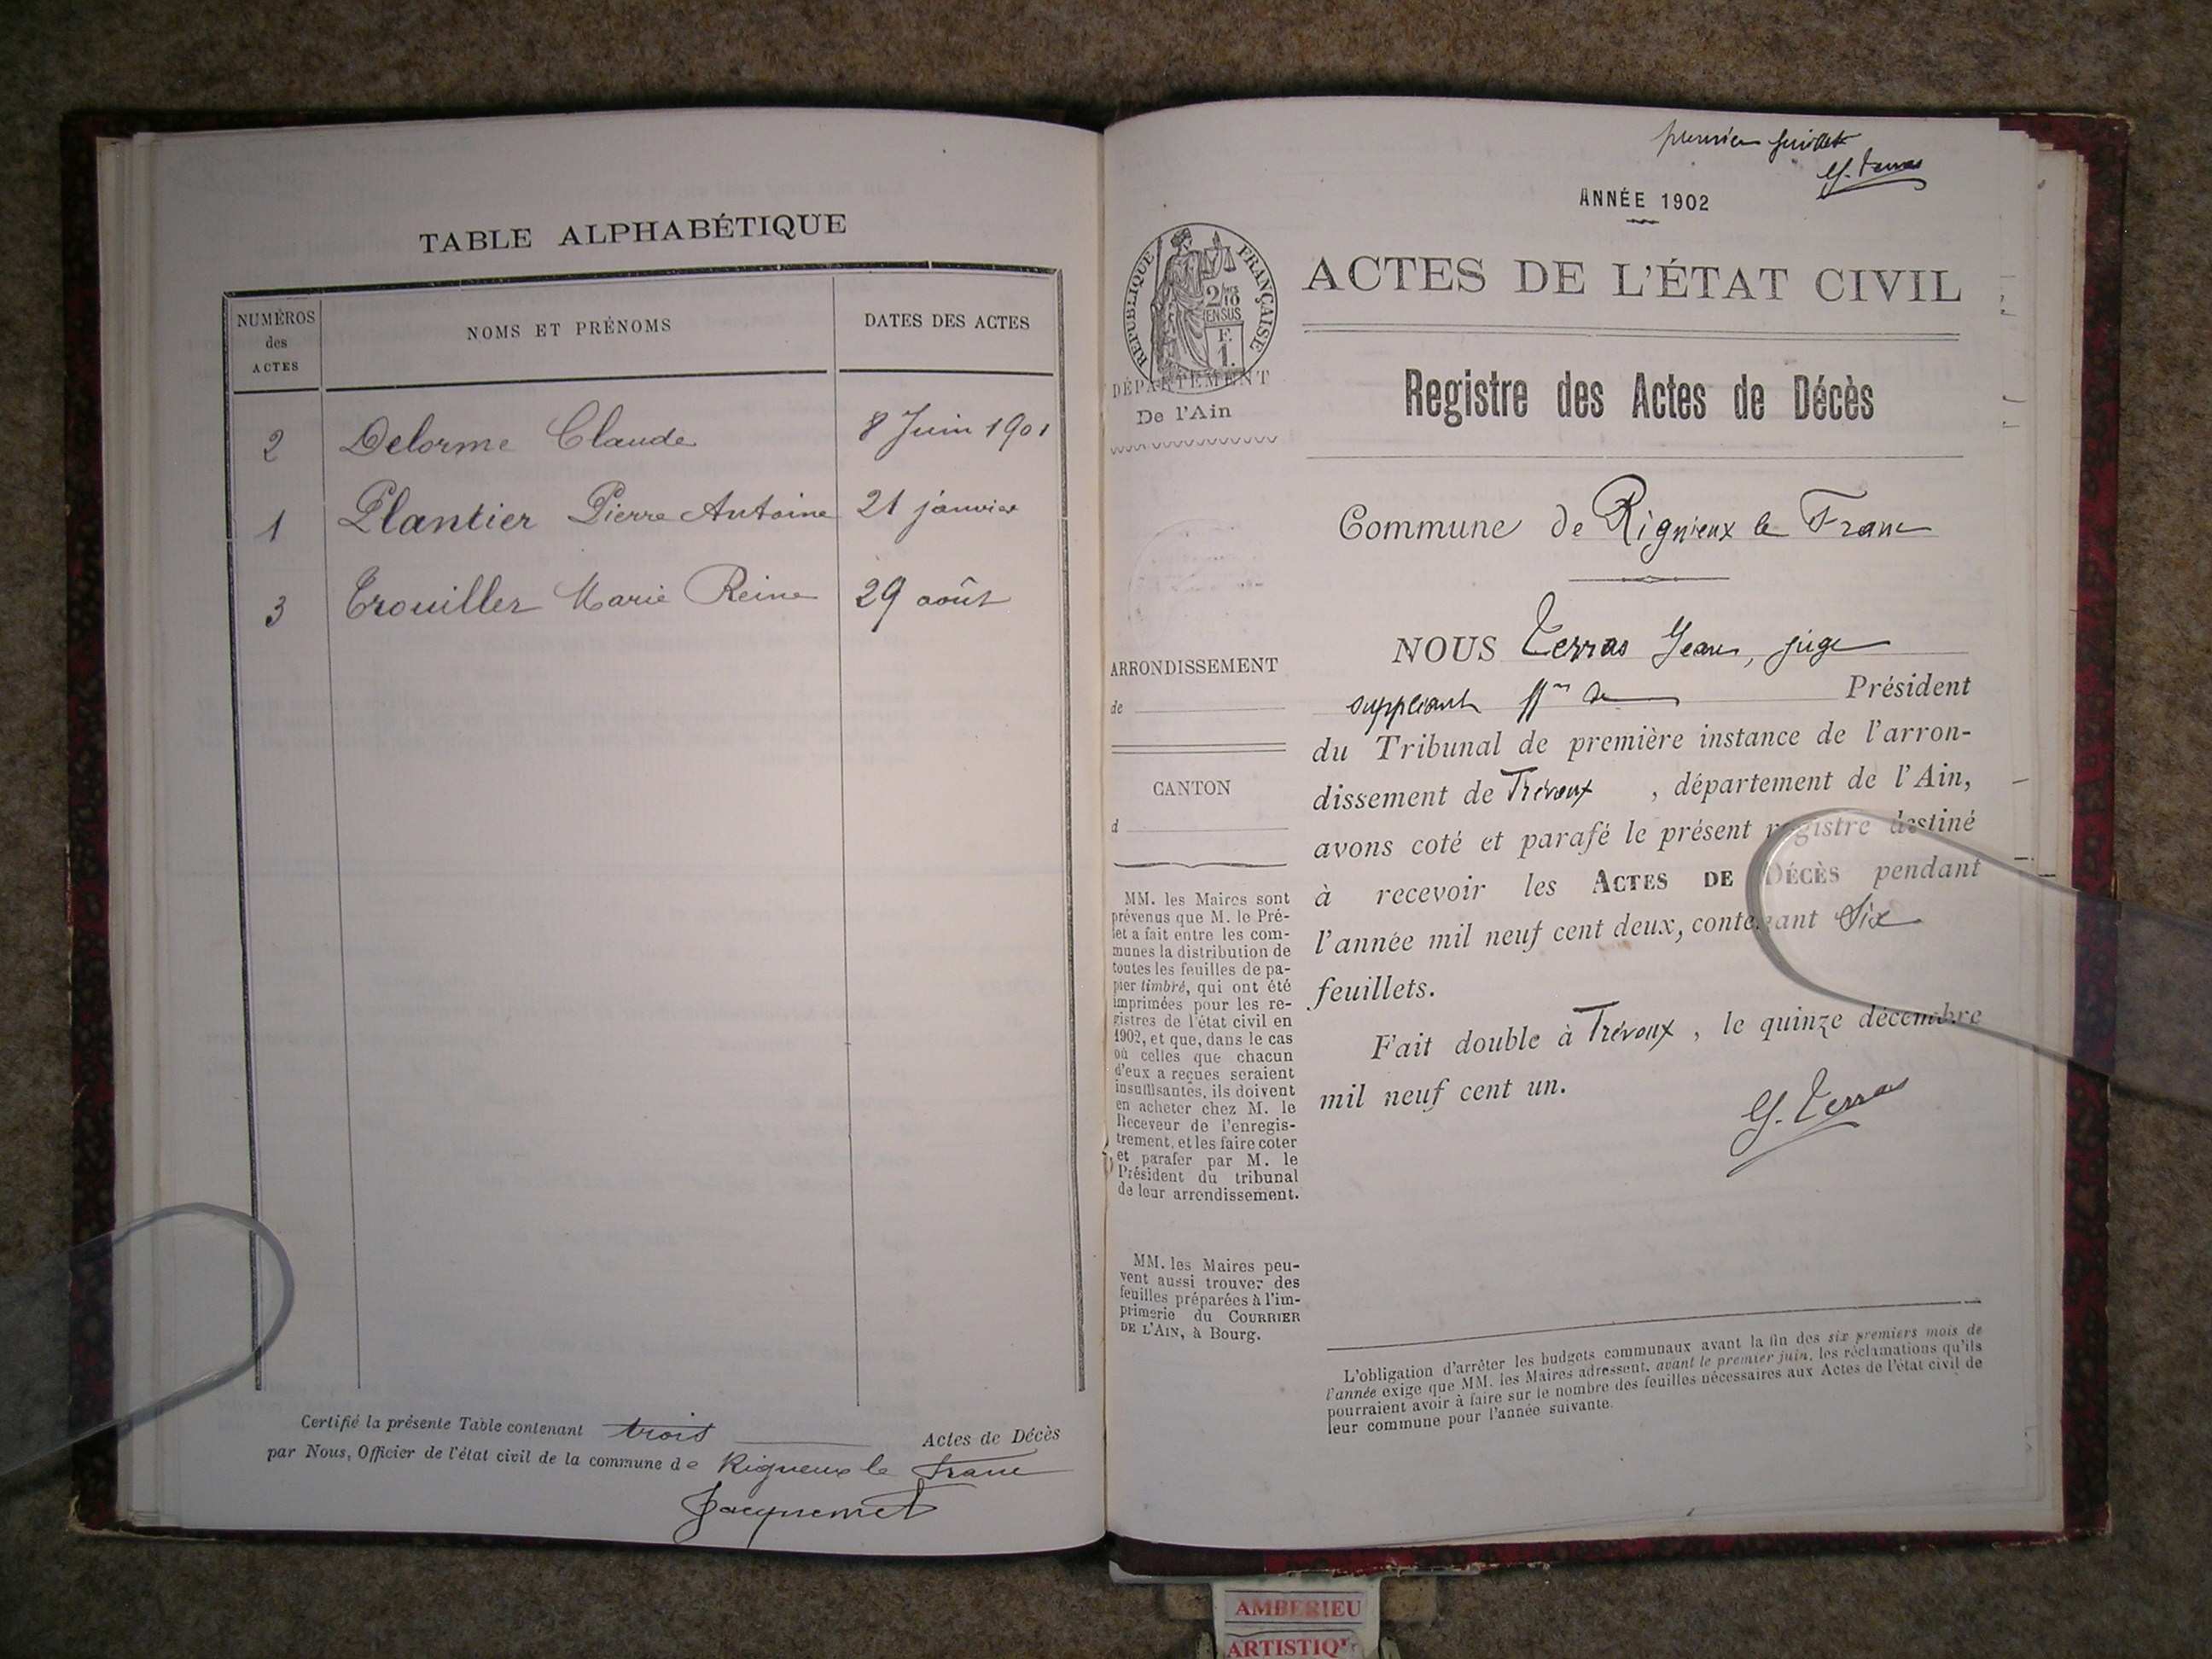 TABLE ALPHABÉTIQUE
NUMÉROS
des
ACTES
NOMS ET PRÉNOMS
DATES DES ACTES
2 Delorme Claude 8 Juin 1901
1 Plantier Pierre Antoine 21 janvier
3 Trouiller Marie Reine 29 août
Certifié la présente Table contenant trois Actes de Décès
par Nous, Officier de l'état civil de la commune de Rigneux le Franc
Jacquemet
premier feuillet
J. Terras
ANNÉE 1902
RÉPUBLIQUE FRANÇAISE
2/10
EN SUS
F.
1.
ACTES DE L'ÉTAT CIVIL
DÉPARTEMENT
De l'Ain
Registre des Actes de Décès
Commune de Rignieux le Franc
ARRONDISSEMENT
de
CANTON
d
MM. les Maires sont
prévenus que M. le Pré-
fet a fait entre les com-
munes la distribution de
toutes les feuilles de pa-
pier timbré, qui ont été
imprimées pour les re-
gistres de l'état civil en
1902, et que, dans le cas
où celles que chacun
d'eux a reçues seraient
insuffisantes, ils doivent
en acheter chez M. le
Receveur de l'enregis-
trement, et les faire coter
et parafer par M. le
Président du tribunal
de leur arrondissement.
MM. les Maires peu-
vent aussi trouver des
feuilles préparées à l'im-
primerie du COURRIER
DE L'AIN, à Bourg.
NOUS Terras Jean, juge
suppléant ff^on de Président
du Tribunal de première instance de l'arron-
dissement de Trévoux , département de l'Ain,
avons coté et parafé le présent registre destiné
à recevoir les ACTES DE DÉCÈS pendant
l'année mil neuf cent deux, contenant Six
feuillets.
Fait double à Trévoux , le quinze décembre
mil neuf cent un.
J. Terras
L'obligation d'arrêter les budgets communaux avant la fin des six premiers mois de
l'année exige que MM. les Maires adressent, avant le premier juin, les réclamations qu'ils
pourraient avoir à faire sur le nombre des feuilles nécessaires aux Actes de l'état civil de
leur commune pour l'année suivante.
AMBERIEU
ARTISTIQ